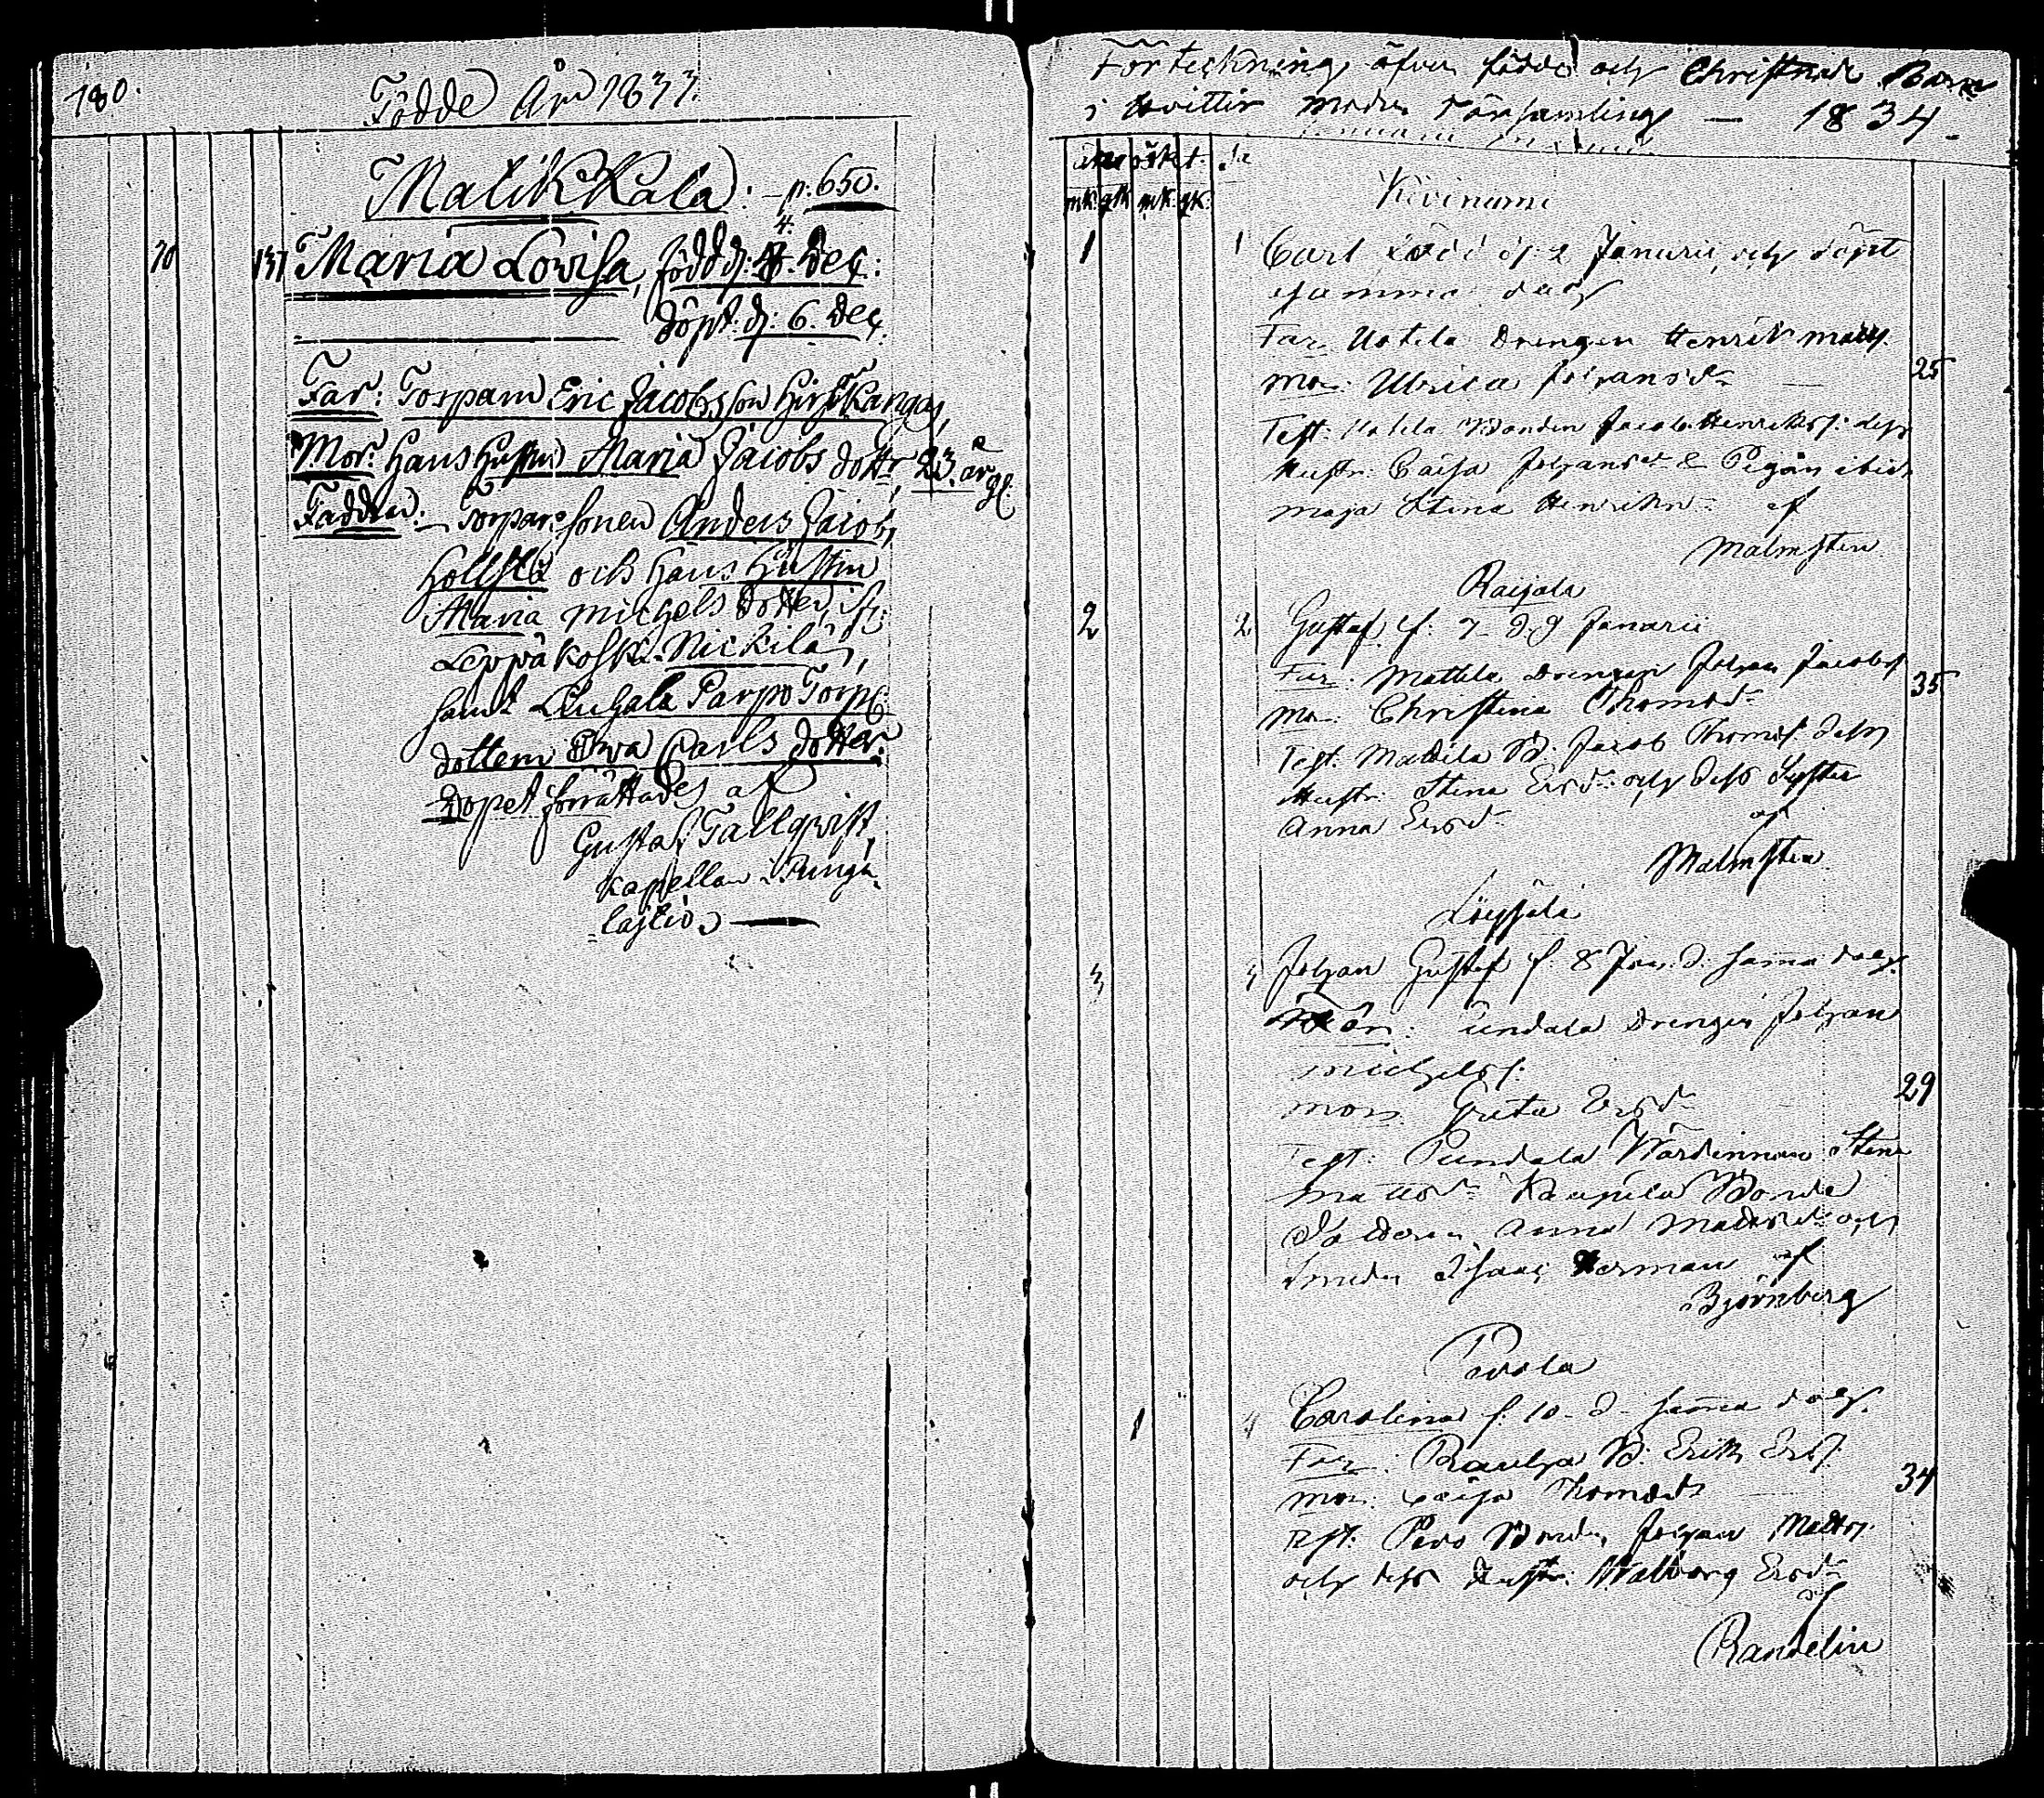 180.
Födde År 1833.
Malikkala: p. 650.
4.
70 131 Maria Lovisa, född d: Dec:
döpt. d: 6. Dec.
Far: Torparen Eric Jacobsson Hirsikangas,
Mor: Hans Hustru Maria Jacobs dotter, 23 år gl.
Faddrar: Torpare sonen Anders Jacobs
och Hans Hustru
Maria Michels dotter, fr.
Leppäkoski Nickilä,
samt Anhala Parpo Torp.
dottern Ewa Carls dotter.
Dopet förrättades af
Gustaf Tallqvist,
Kapellan i Punga-
lajtio.
Förteckning öfver födde och Christnade Barn
i Hvittis Moder Församling — 1834.
äkta oäkt.
mk. qk. mk. qk.
Kivinumi
1 1 Carl född d. 2 Januarii, och döpt
samma dag
Far Uotila Drengen Henrik Matts.
Mor: Ulrica Johansdr — 25
Test: Uotila Bonden Jacob Henrikss: dess
Hustr: Caisa Johansdr & Pigan ibid.
Maja Stina Henriksdr af
Malmsten
Raijala
2 2 Gustaf f: 7 d. 9 Januarii
Far: Mattila Drengen Johan Jacobss
Mor: Christina Thomasdr 35
Test: Mattila B. Jacob Thomass dess
Hustr: Stina Ersdr och dess Syster
Anna Ersdr af
Malmsten
3 3 Johan Gustaf f. 8 Jan. d. samma dag.
Far: Drengen Johan
Michelss.
Mor Greta Ersdr 29
Test: Pundala Wärdinnan Stina
Mattsdr Kaupila Bonde
Dottern Anna Mattsdr och
Smeden Isaac Herman af
Björnberg
1 4 Carolina f. 10 d. samma dag.
Far: Raulja B: Erik Erss.
Mor: Caisa Thomasdr 34
Test: Bonden Johan Matts.
och dess Hustr: Walborg Ersdr
af
Randelin